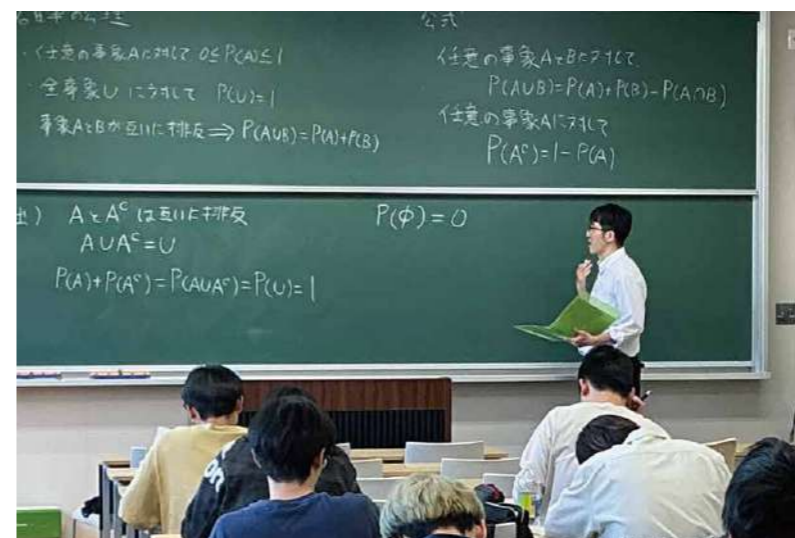 ・任意の事象Aに対して 0≤P(A)≤1
・全事象U に対して P(U)=1
事象AとBが互いに排反⇒P(A∪B)=P(A)+P(B)
公式
任意の事象AとBに対して
P(A∪B)=P(A)+P(B)-P(A∩B)
任意の事象Aに対して
P(Aᶜ)=1-P(A)
AとAᶜは互いに排反
A∪Aᶜ=U
P(A)+P(Aᶜ)=P(A∪Aᶜ)=P(U)=1
P(∅)=0